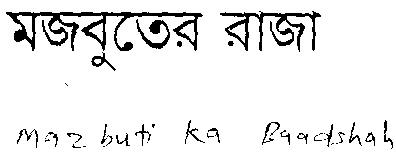 মজবুতের রাজা
Mazbuti ka Baadshah